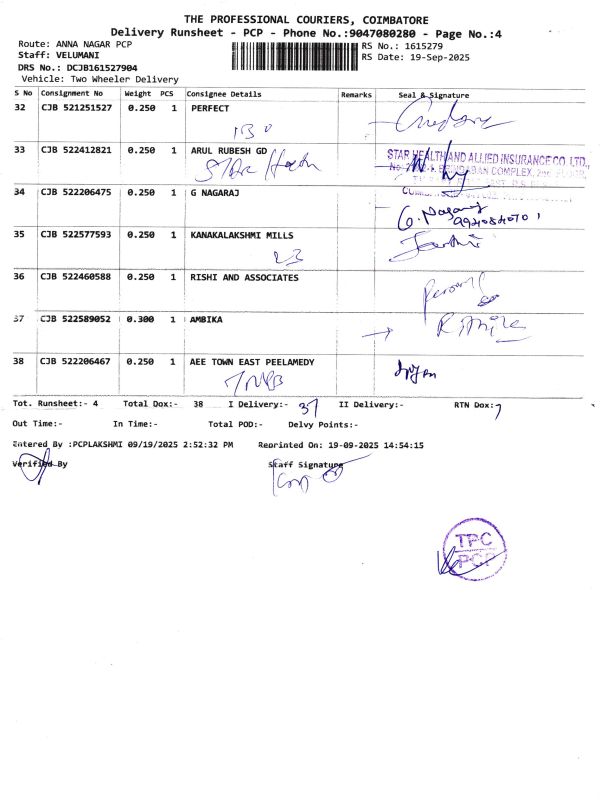 THE PROFESSIONAL COURIERS, COIMBATORE
Delivery Runsheet - PCP - Phone No.:9047080280 - Page No.:4
Route: ANNA NAGAR PCP
RS No.: 1615279
Staff: VELUMANI
RS Date: 19-Sep-2025
DRS No.: DCJB161527904
Vehicle: Two Wheeler Delivery
S No Consignment No Weight PCS Consignee Details Remarks Seal & Signature
32 CJB 521251527 0.250 1 PERFECT
33 CJB 522412821 0.250 1 ARUL RUBESH GD
Star Health
STAR HEALTH AND ALLIED INSURANCE CO. LTD.,
34 CJB 522206475 0.250 1 G NAGARAJ
G. Nagaraj
35 CJB 522577593 0.250 1 KANAKALAKSHMI MILLS
23
36 CJB 522460588 0.250 1 RISHI AND ASSOCIATES
37 CJB 522589052 0.300 1 AMBIKA
38 CJB 522206467 0.250 1 AEE TOWN EAST PEELAMEDY
TNEB
Tot. Runsheet:- 4 Total Dox:- 38 I Delivery:- 37 II Delivery:- RTN Dox:- 1
Out Time:- In Time:- Total POD:- Delvy Points:-
Entered By :PCPLAKSHMI 09/19/2025 2:52:32 PM Reprinted On: 19-09-2025 14:54:15
Verified By Staff Signature
TPC
PCP